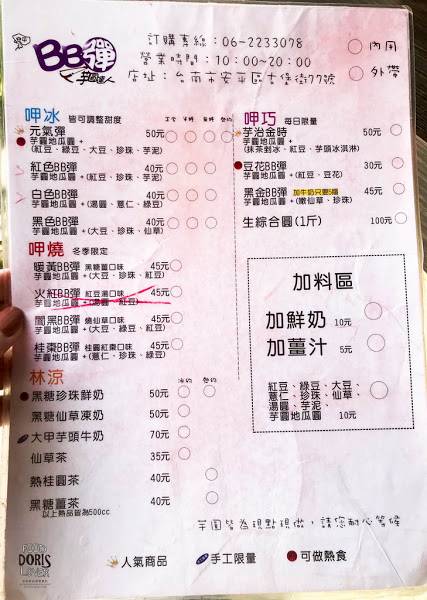 BB彈
芋圓達人
訂購專線：06-2233078
營業時間：10:00~20:00
店址：台南市安平區古堡街77號
內用
外帶
呷冰 皆可調整甜度
元氣彈 50元
芋圓地瓜圓 +
(紅豆、綠豆、大豆、珍珠、芋泥)
紅色BB彈 40元
芋圓地瓜圓 +(紅豆、珍珠、芋泥)
白色BB彈 40元
芋圓地瓜圓 +(湯圓、薏仁、綠豆)
黑色BB彈 40元
芋圓地瓜圓 +(大豆、珍珠、仙草)
呷燒 冬季限定
暖黃BB彈 黑糖薑口味 45元
芋圓地瓜圓 +(大豆、珍珠、紅豆)
火紅BB彈 紅豆湯口味 45元
芋圓地瓜圓 +(湯圓、紅豆)
闇黑BB彈 燒仙草口味 45元
芋圓地瓜圓 +(大豆、綠豆、紅豆)
桂棗BB彈 桂圓紅棗口味 45元
芋圓地瓜圓 +(薏仁、珍珠、綠豆)
林涼
黑糖珍珠鮮奶 50元
黑糖仙草凍奶 50元
大甲芋頭牛奶 70元
仙草茶 35元
熱桂圓茶 40元
黑糖薑茶 40元
以上熱品皆為500cc
呷巧 每日限量
芋治金時 50元
芋圓地瓜圓 +
(抹茶剉冰、紅豆、芋頭冰淇淋)
豆花BB彈 30元
芋圓地瓜圓 +(紅豆、豆花)
黑金BB彈 加牛奶只要5元 45元
芋圓地瓜圓 +(嫩仙草、珍珠)
生綜合圓(1斤) 100元
加料區
加鮮奶 10元
加薑汁 5元
紅豆、綠豆、大豆、
薏仁、珍珠、仙草、
湯圓、芋泥、
芋圓地瓜圓 10元
芋圓皆為現點現做，請您耐心等候
FOOD
DORIS
LOVER
人氣商品
手工限量
可做熱食